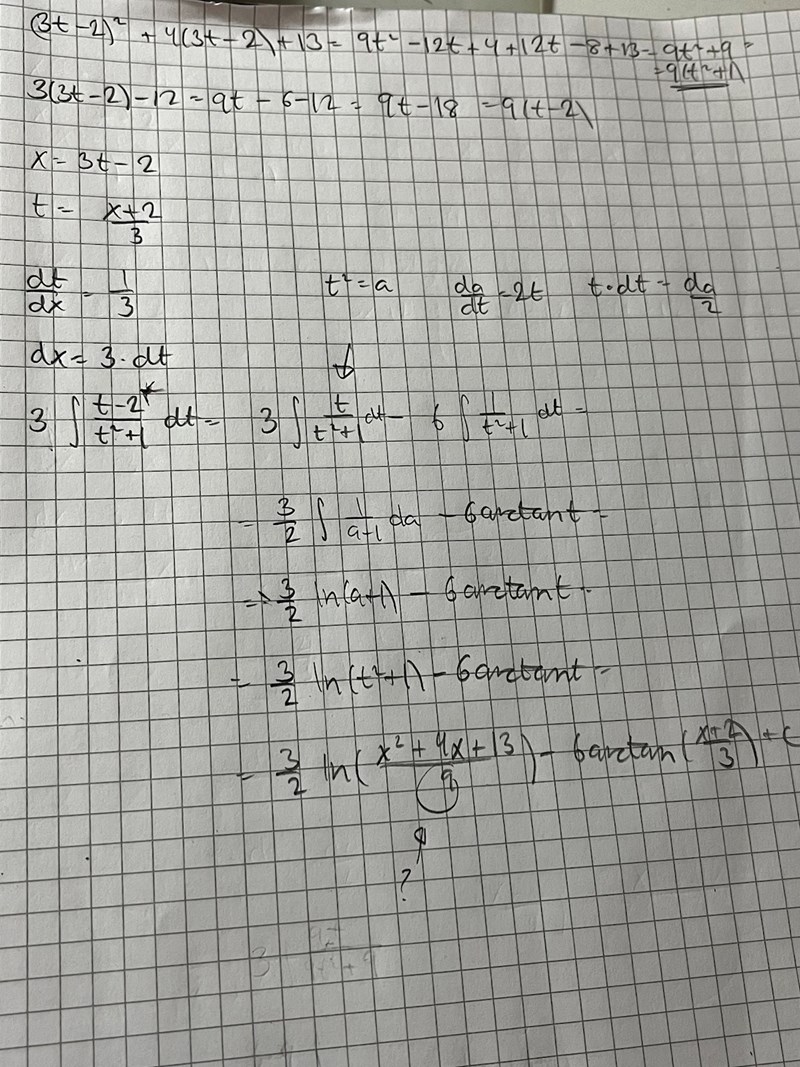 (3t-2)² + 4(3t-2)+13 = 9t² -12t+4+12t-8+13 = 9t²+9 =
= 9(t²+1)
3(3t-2)-12 = 9t - 6-12 = 9t-18 = 9(t-2)
x = 3t-2
t = (x+2)/3
dt/dx = 1/3   t² = a   da/dt = 2t   t·dt = da/2
dx = 3·dt
3 ∫ (t-2)/(t²+1) dt = 3 ∫ t/(t²+1) dt - 6 ∫ 1/(t²+1) dt =
= 3/2 ∫ 1/(a+1) da - 6arctant =
= 3/2 ln(a+1) - 6arctant =
= 3/2 ln(t²+1) - 6arctant =
= 3/2 ln((x²+4x+13)/9) - 6arctan((x+2)/3) + C
?